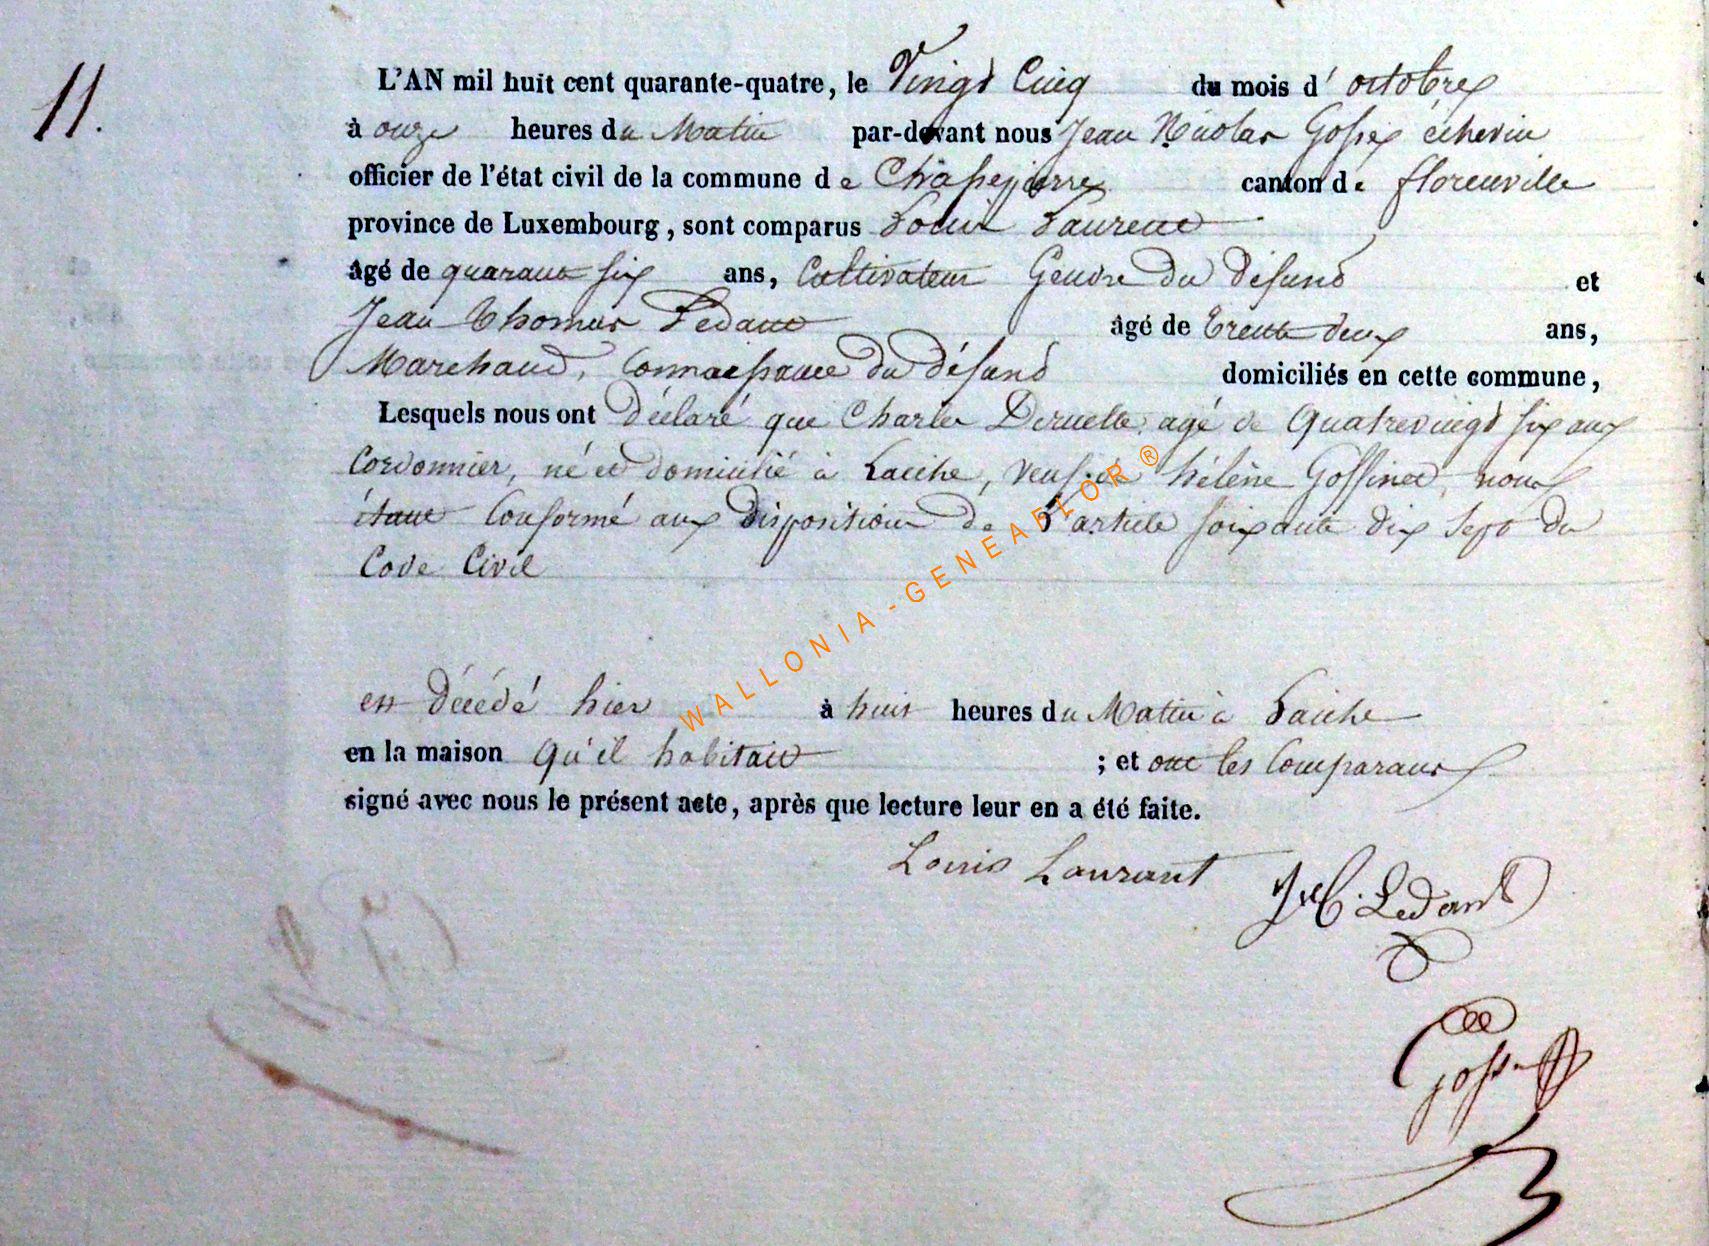 11.
L'AN mil huit cent quarante-quatre, le Vingt Cinq du mois d' octobre
à onze heures du Matin par-devant nous Jean Nicolas Gosse échevin
officier de l'état civil de la commune de Chassepierre canton de florenville
province de Luxembourg, sont comparus Louis Laurent
âgé de quarante six ans, Cultivateur Gendre du défunt et
Jean Thomas Ledant âgé de trente deux ans,
Marchand, Connaissance du défunt domiciliés en cette commune,
Lesquels nous ont déclaré que Charles Deruelle agé de Quatrevingt six ans
Cordonnier, né et domicilié à Laiche, veuf de hélène Goffinet, nous
étant Conformé aux disposition de L'article soixante dix sept du
Code Civil
est décédé hier à huit heures du Matin à Laiche
en la maison Qu'il habitait ; et ont les Comparans
signé avec nous le présent acte, après que lecture leur en a été faite.
Louis Laurant
Ledant
Gosse
WALLONIA-GENEAFLOR®